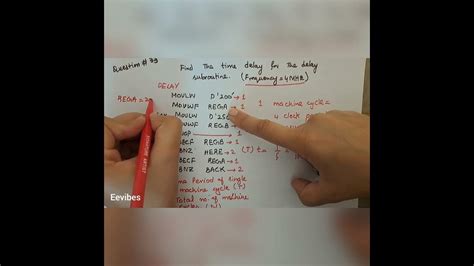 Question # 39
Find The time delay for The delay
subroutine. (Frequency = 4 MHz)
DELAY
MOVLW D'200' → 1
REGA = 20
MOVWF REGA → 1 1 machine cycle =
MOVLW D'250 4 clock
MOVWF REGB → 1
→ 1
DECF REGB → 1
BNZ HERE → 2 (T) t =
DECF REGA → 1
BNZ BACK → 2
Time Period of single
machine cycle (T)
Total no. of machine
Eevibes